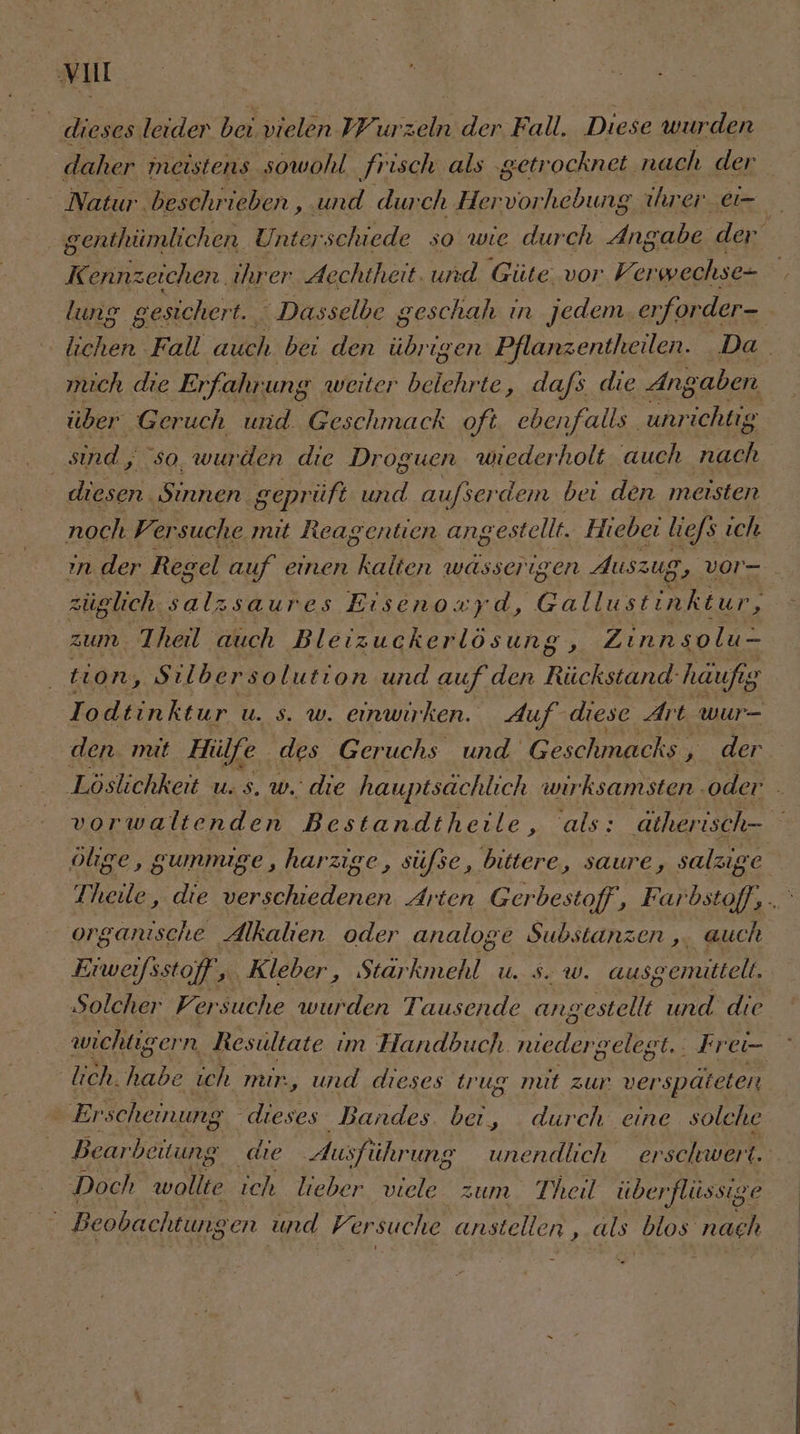 VIII
dieses leider bei vielen Wurzeln der Fall. Diese wurden
daher meistens sowohl frisch als getrocknet nach der
Natur beschrieben, und durch Hervorhebung ihrer ei-
genthümlichen Unterschiede so wie durch Angabe der
Kennzeichen ihrer Aechtheit und Güte vor Verwechse-
lung gesichert. Dasselbe geschah in jedem erforder-
lichen Fall auch bei den übrigen Pflanzentheilen. Da
mich die Erfahrung weiter belehrte, daſs die Angaben
über Geruch und Geschmack oft ebenfalls unrichtig
sind, so wurden die Droguen wiederholt auch nach
diesen Sinnen geprüft und auſserdem bei den meisten
noch Versuche mit Reagentien angestellt. Hiebei lieſs ich
in der Regel auf einen kalten wässerigen Auszug, vor-
züglich salzsaures Eisenoxyd, Gallustinktur,
zum Theil auch Bleizuckerlösung, Zinnsolu-
tion, Silbersolution und auf den Rückstand häufig
Iodtinktur u. s. w. einwirken. Auf diese Art wur-
den mit Hülfe des Geruchs und Geschmacks, der
Löslichkeit u. s. w. die hauptsächlich wirksamsten oder
vorwaltenden Bestandtheile, als: ätherisch-
ölige, gummige, harzige, süſse, bittere, saure, salzige
Theile, die verschiedenen Arten Gerbestoff, Farbstoff,
organische Alkalien oder analoge Substanzen, auch
Eiweiſsstoff, Kleber, Stärkmehl u. s. w. ausgemittelt.
Solcher Versuche wurden Tausende angestellt und die
wichtigern Resultate im Handbuch niedergelegt. Frei-
lich habe ich mir, und dieses trug mit zur verspäteten
Erscheinung dieses Bandes bei, durch eine solche
Bearbeitung die Ausführung unendlich erschwert.
Doch wollte ich lieber viele zum Theil überflüssige
Beobachtungen und Versuche anstellen, als blos nach